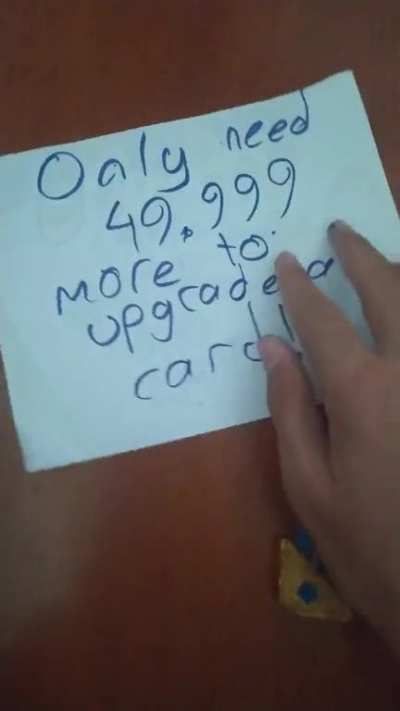 Only need
49.999
more to
upgrade a
card!!